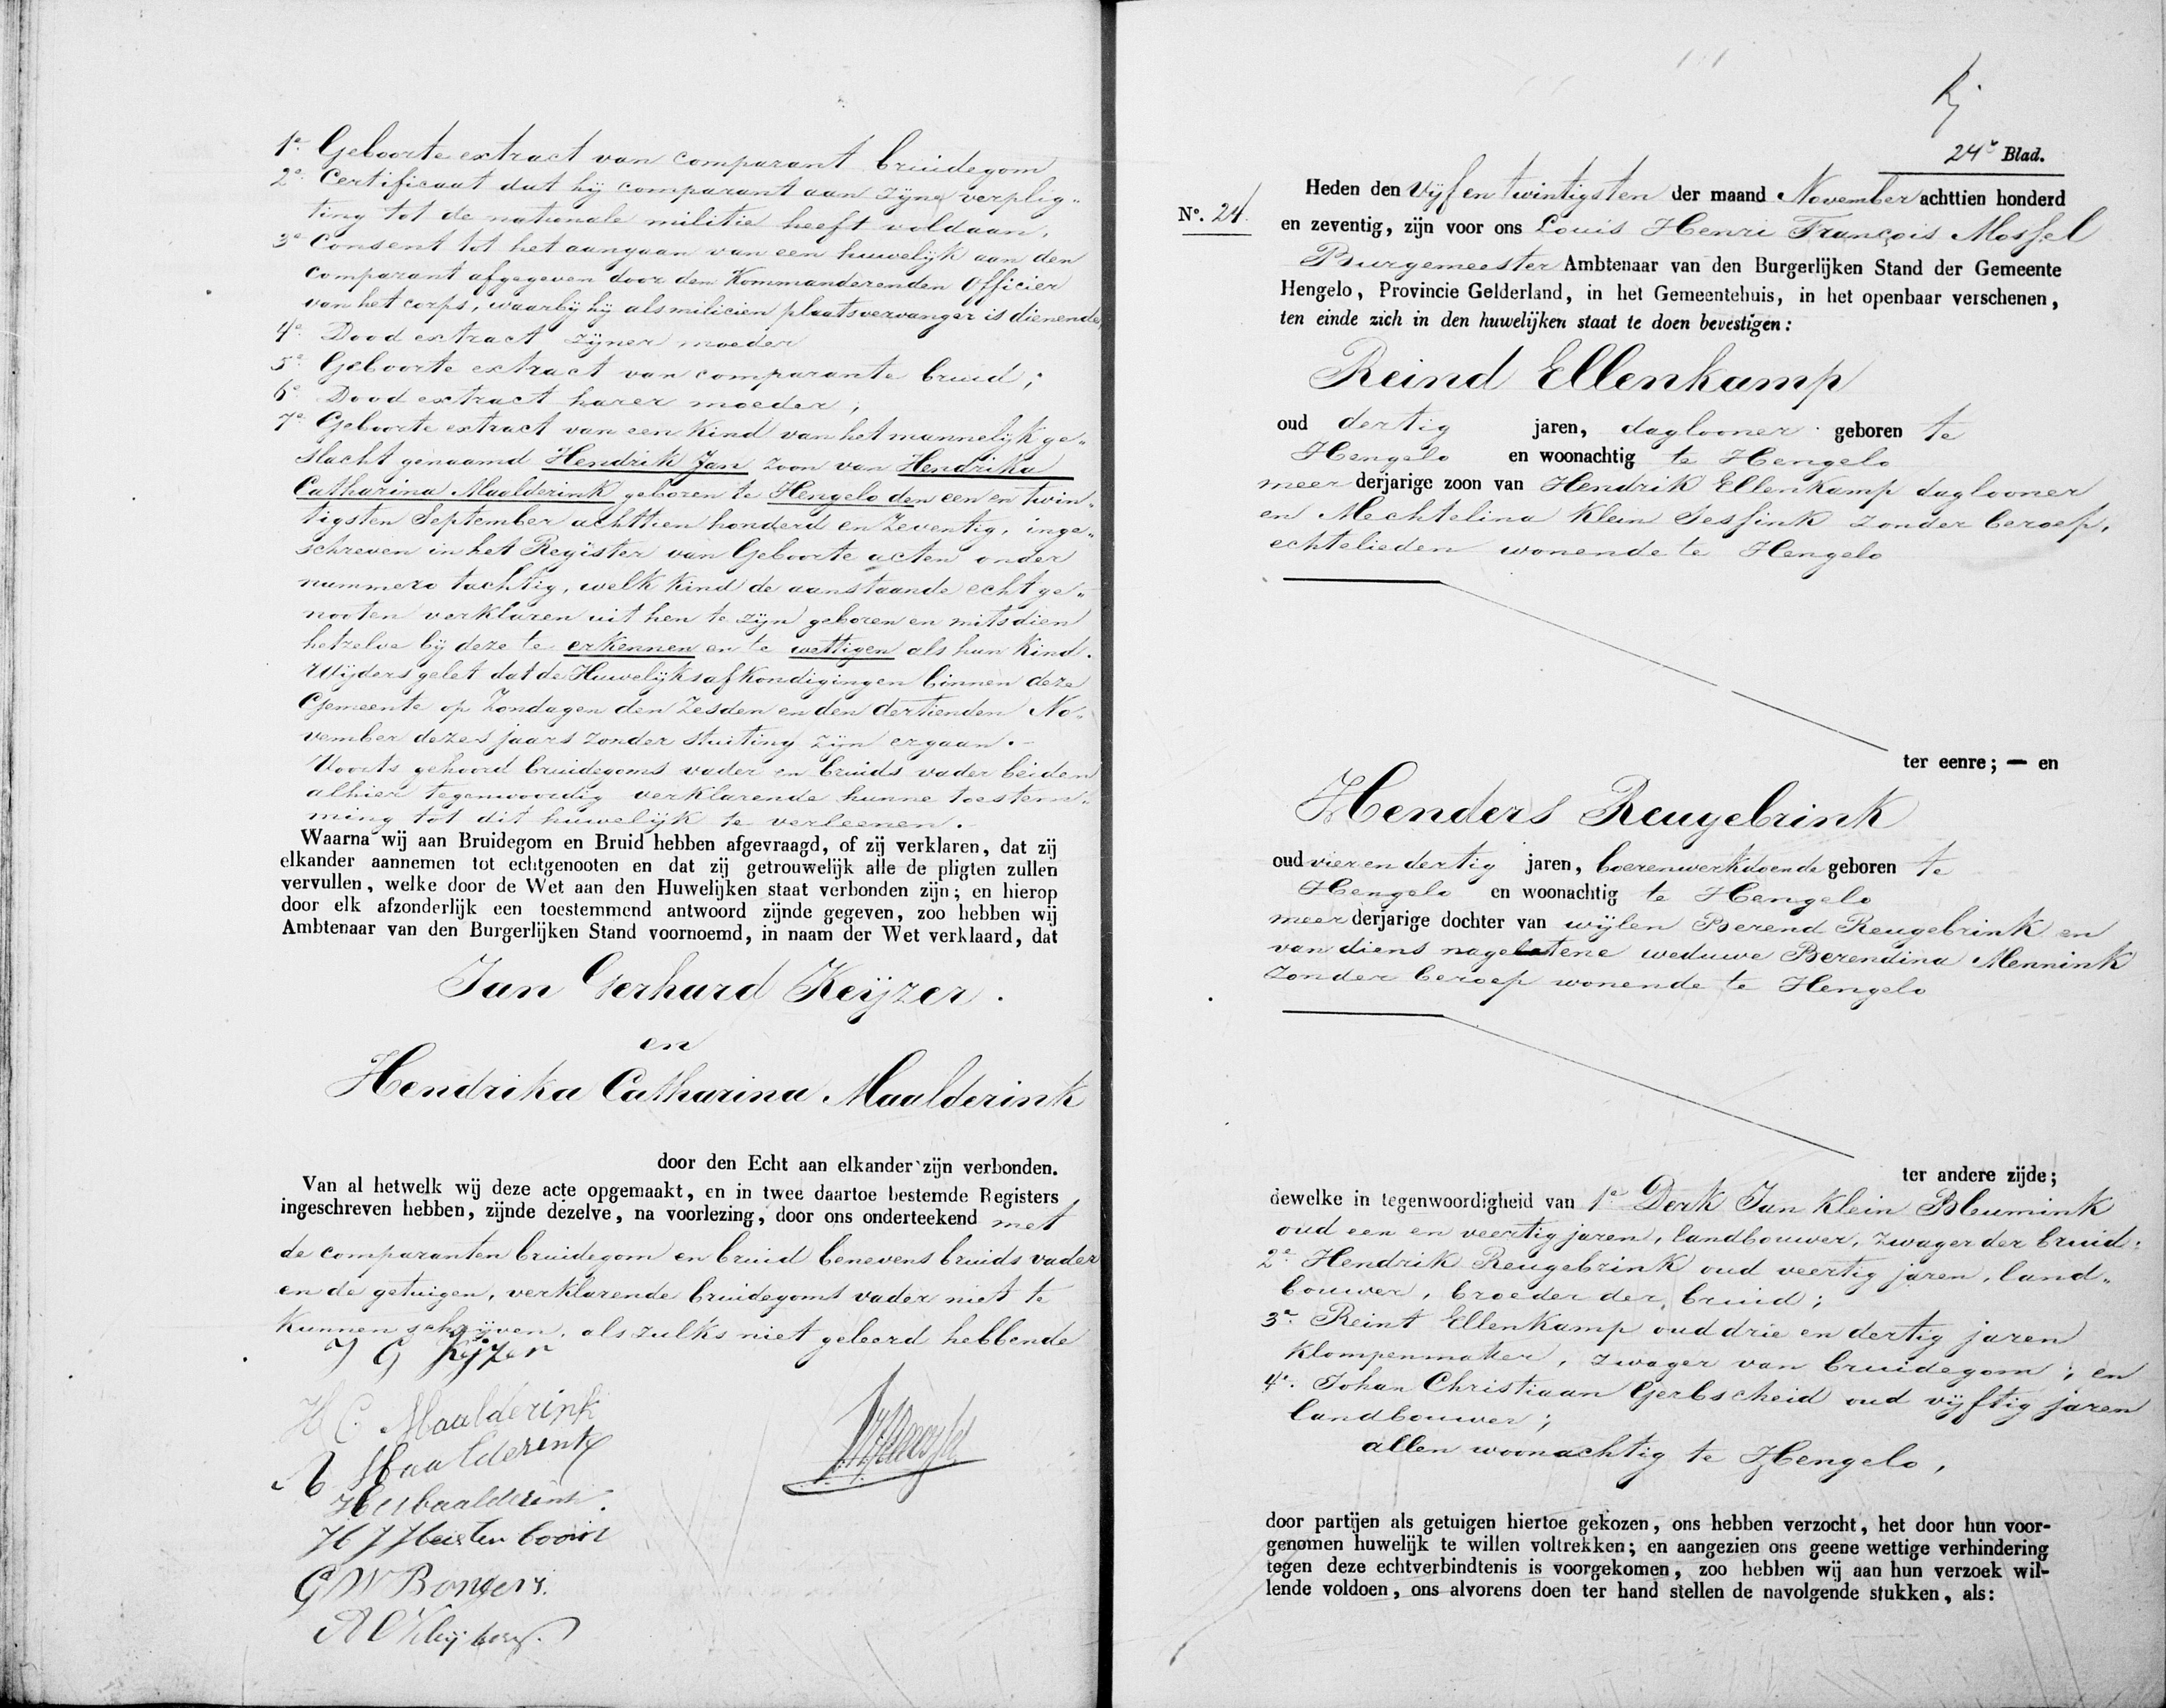 1e. Geboorte extract van comparant bruidegom
2e. Certificaat dat hij comparant aan zijne verplig„
ting tot de nationale militie heeft voldaan,
3e Consent tot het aangaan van een huwelijk aan den
comparant afgegeven door den Kommanderenden Officier
van het corps, waarbij hij als milicien plaatsvervanger is dienende,
4e. Dood extract zijner moeder
5e. Geboorte extract van comparante bruid;
6e. Dood extract harer moeder;
7e. Geboorte extract van een kind van het mannelijk ge„
slacht genaamd Hendrik Jan zoon van Hendrika
Catharina Maalderink geboren te Hengelo den een en twin„
tigsten September achttien honderd en zeventig, inge„
schreven in het Register van Geboorte acten onder
nummero tachtig, welk kind de aanstaande echtge„
nooten verklaren uit hen te zijn geboren en mitsdien
hetzelve bij deze te erkennen en te wettigen als hun kind.
Wijders gelet dat de Huwelijksafkondigingen binnen deze
Gemeente op Zondagen den Zesden en den dertienden No„
vember dezes jaars zonder stuiting zijn ergaan.-
Voorts gehoord bruidegoms vader en bruids vader beiden
alhier tegenwoordig verklarende hunne toestem„
ming tot dit huwelijk te verleenen.
Waarna wij aan Bruidegom en Bruid hebben afgevraagd, of zij verklaren, dat zij
elkander aannemen tot echtgenooten en dat zij getrouwelijk alle de pligten zullen
vervullen, welke door de Wet aan den Huwelijken staat verbonden zijn; en hierop
door elk afzonderlijk een toestemmend antwoord zijnde gegeven, zoo hebben wij
Ambtenaar van den Burgerlijken Stand voornoemd, in naam der Wet verklaard, dat
Jan Gerhard Keijzer.
en
Hendrika Catharina Maalderink
door den Echt aan elkander zijn verbonden.
Van al hetwelk wij deze acte opgemaakt, en in twee daartoe bestemde Registers
ingeschreven hebben, zijnde dezelve, na voorlezing, door ons onderteekend met
de comparanten bruidegom en bruid benevens bruids vader
en de getuigen, verklarende bruidegoms vader niet te
kunnen schrijven, als zulks niet geleerd hebbende
J G Kijzer
H C. Maalderink
Maalderink
Maalderink.
H J
G W Bongers.
24e Blad.
No. 24.
Heden den Vijf en twintigsten der maand November achttien honderd
en zeventig, zijn voor ons Louis Henri François Mossel
Burgemeester Ambtenaar van den Burgerlijken Stand der Gemeente
Hengelo, Provincie Gelderland, in het Gemeentehuis, in het openbaar verschenen,
ten einde zich in den huwelijken staat te doen bevestigen:
Reind Ellenkamp
oud dertig jaren, daglooner geboren te
Hengelo en woonachtig te Hengelo
meer derjarige zoon van Hendrik Ellenkamp daglooner
en Mechtelina Klein Jessink zonder beroep,
echtelieden wonende te Hengelo
ter eenre; — en
Henders Reugebrink
oud vier en dertig jaren, boerenwerkdoende geboren te
Hengelo en woonachtig te Hengelo
meer derjarige dochter van wijlen Berend Reugebrink en
van diens nagelatene weduwe Berendina Mennink
zonder beroep wonende te Hengelo
ter andere zijde;
dewelke in tegenwoordigheid van 1e. Derk Jan Klein Bleumink
oud een en veertig jaren, landbouwer, zwager der bruid;
2e. Hendrik Reugebrink oud veertig jaren, land„
bouwer, broeder der bruid;
3e. Reint Ellenkamp oud drie en dertig jaren
klompenmaker, zwager van bruidegom; en
4e. Johan Christiaan Gerbscheid oud vijftig jaren
landbouwer;
allen woonachtig te Hengelo,
door partijen als getuigen hiertoe gekozen, ons hebben verzocht, het door hun voor-
genomen huwelijk te willen voltrekken; en aangezien ons geene wettige verhindering
tegen deze echtverbindtenis is voorgekomen, zoo hebben wij aan hun verzoek wil-
lende voldoen, ons alvorens doen ter hand stellen de navolgende stukken, als: